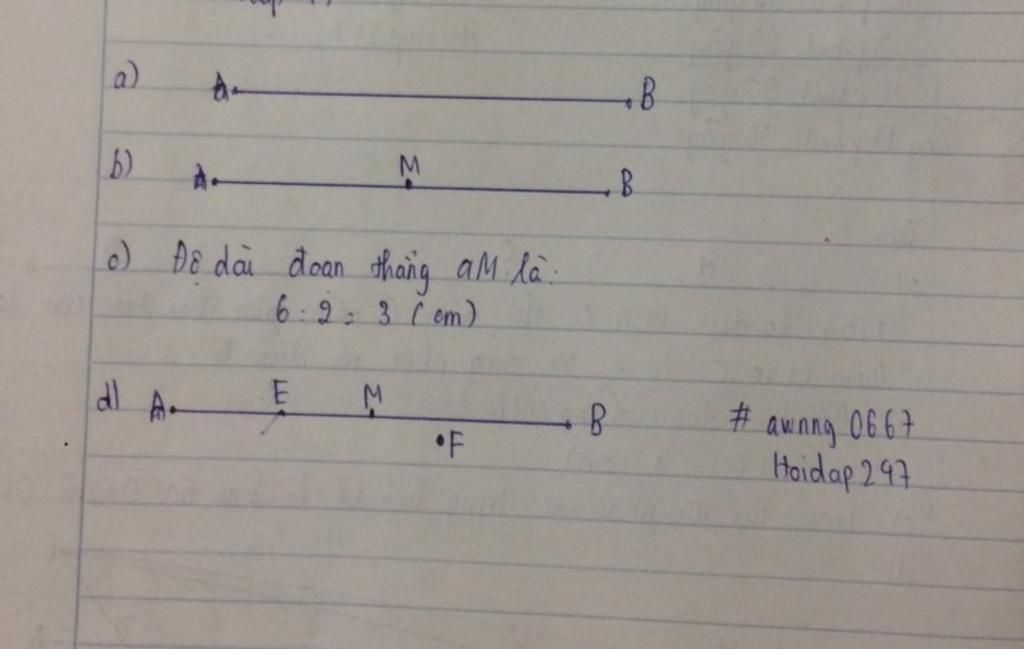 a) A B
b) A M B
c) Độ dài đoạn thẳng aM là:
6 : 2 = 3 (cm)
d) A E M B # awnng 0667
F Hoidap 247